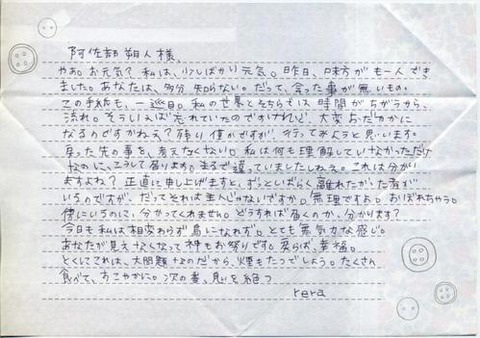 阿佐部朔人様、
やあ。お元気？私は、少しばかり元気。昨日、味方がも一人でき
ました。あなたは、多分知らない。だって、会った事が無いもの。
この手紙も、一巡目。私の世界とそちらでは時間がちがうから、
流れ。そういえば忘れていたのですけれど、大変だったかに
なるのですかねえ？残り僅かですが、行ってみようと思います。
戻った先の事を、考えなくない。私は何も理解していなかっただけ
なのに、こうして居ります。まるで違っていましたしねえ。これは分かり
ますよね？正直に申し上げますと、ずっとしばらく離れたがった者が
いるのですが、だってそれは主人じゃないですか。無理ですね。おぼれちゃう。
傍にいるのに、分かってくれません。どうすれば届くのか、分かります？
今日も私は相変わらず鳥になれず。とても無気力な感じ。
あなたが見えなくなって神もお祭りです。柔らば、幸福。
とくしてこれは、大問題なのだから、煙もたつでしょう。たくさん
食べて、すこやかに。次の春、息を絶つ
rera